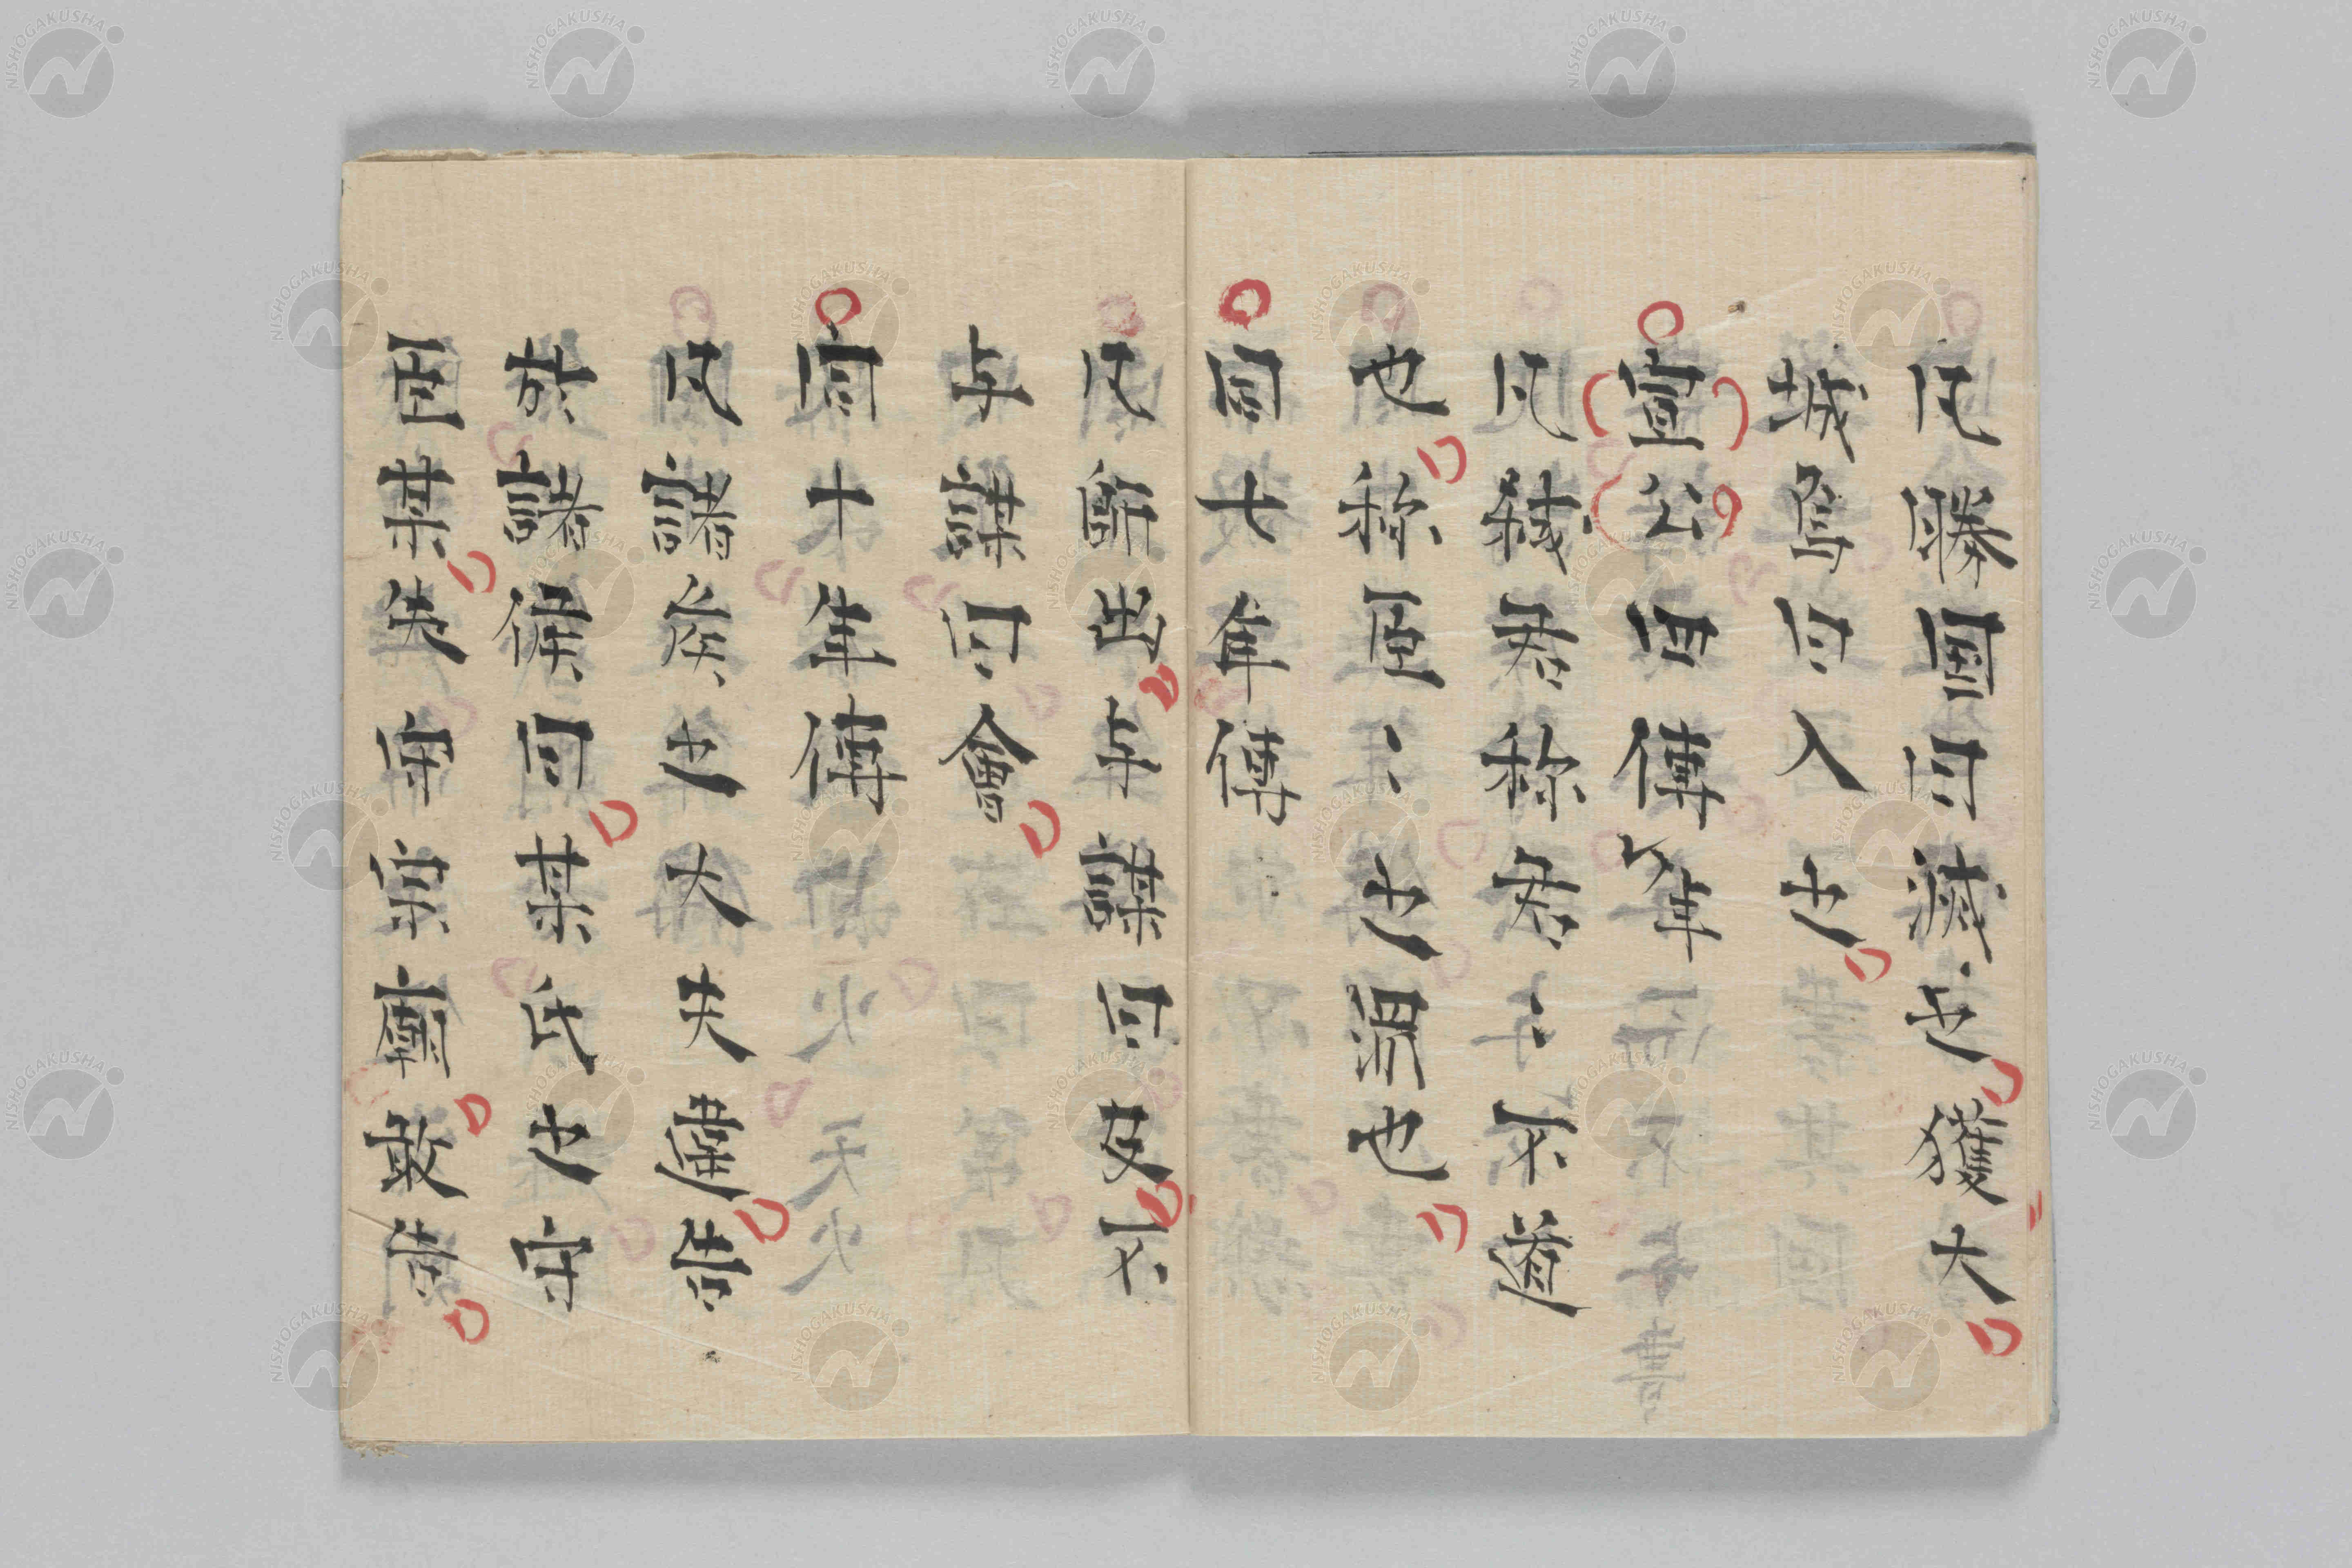 凡勝國曰滅之獲大
城焉曰入之
宣公四傳年
凡弑君称君々无道
也称臣々之罪也
同七年傳
凡師出与謀曰及不
与謀曰會
同十年傳
凡諸侯之大夫違告
於諸侯曰某氏之守
臣某失守宗廟敢告
NISHOGAKUSHA